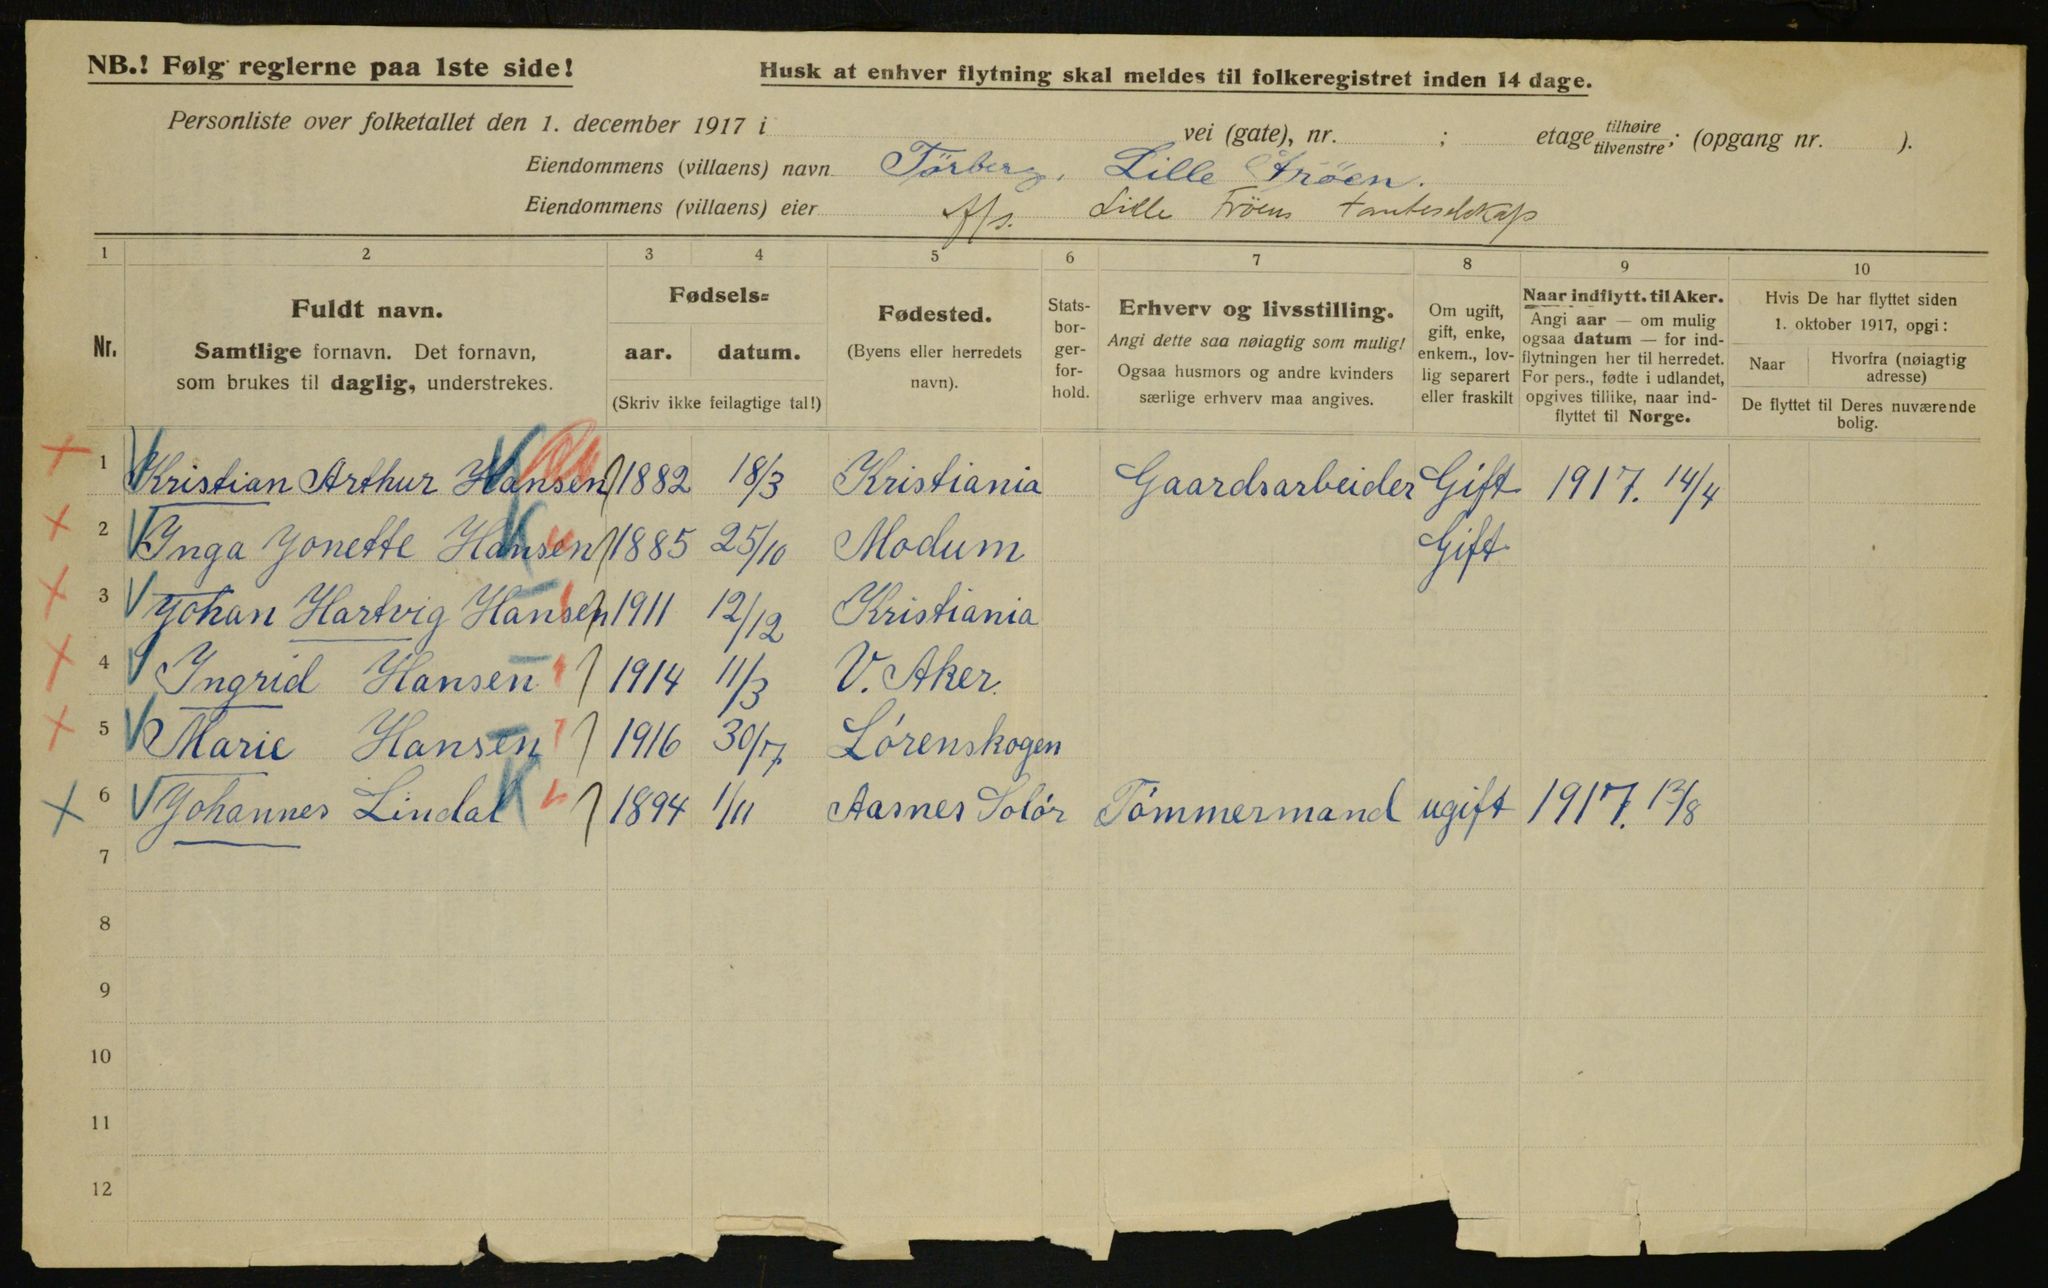 NB.! Følg reglerne paa 1ste side!
Husk at enhver flytning skal meldes til folkeregistret inden 14 dage.
Personliste over folketallet den 1. december 1917 i vei (gate), nr. ; etage tilhøire tilvenstre; (opgang nr. ).
Eiendommens (villaens) navn Törberg, Lille Fröen.
Eiendommens (villaens) eier A/s. Lille Fröens Tomteselskap
1 2 3 4 5 6 7 8 9 10
Nr.
Fuldt navn.
Samtlige fornavn. Det fornavn,
som brukes til daglig, understrekes.
Fødsels=
aar. datum.
(Skriv ikke feilagtige tal!)
Fødested.
(Byens eller herredets
navn).
Stats-
bor-
ger-
for-
hold.
Erhverv og livsstilling.
Angi dette saa nøiagtig som mulig!
Ogsaa husmors og andre kvinders
særlige erhverv maa angives.
Om ugift,
gift, enke,
enkem., lov-
lig separert
eller fraskilt
Naar indflytt. til Aker.
Angi aar — om mulig
ogsaa datum — for ind-
flytningen her til herredet.
For pers., fødte i udlandet,
opgives tillike, naar ind-
flyttet til Norge.
Hvis De har flyttet siden
1. oktober 1917, opgi:
Naar
Hvorfra (nøiagtig
adresse)
De flyttet til Deres nuværende
bolig.
1 Kristian Arthur Hansen 1882 18/3 Kristiania Gaardsarbeider Gift 1917. 14/4
2 Inga Jonette Hansen 1885 25/10 Modum Gift
3 Johan Hartvig Hansen 1911 12/12 Kristiania
4 Ingrid Hansen 1914 11/3 V. Aker.
5 Marie Hansen 1916 30/7 Lórenskogen
6 Johannes Lindal 1894 1/11 Aasnes Solór Tómmermand ugift 1917. 12/8
7
8
9
10
11
12